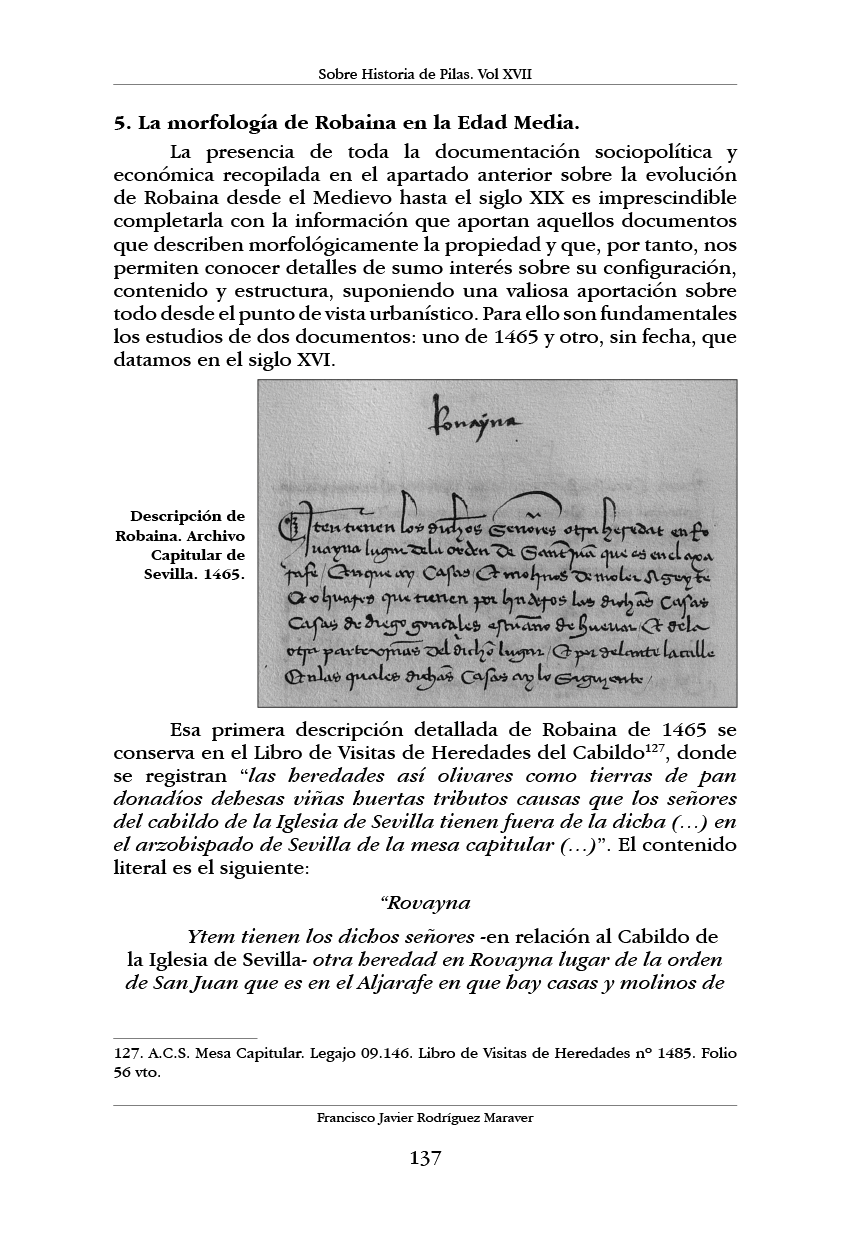 Sobre Historia de Pilas. Vol XVII
5. La morfología de Robaina en la Edad Media.
La presencia de toda la documentación sociopolítica y
económica recopilada en el apartado anterior sobre la evolución
de Robaina desde el Medievo hasta el siglo XIX es imprescindible
completarla con la información que aportan aquellos documentos
que describen morfológicamente la propiedad y que, por tanto, nos
permiten conocer detalles de sumo interés sobre su configuración,
contenido y estructura, suponiendo una valiosa aportación sobre
todo desde el punto de vista urbanístico. Para ello son fundamentales
los estudios de dos documentos: uno de 1465 y otro, sin fecha, que
datamos en el siglo XVI.
Descripción de
Robaina. Archivo
Capitular de
Sevilla. 1465.
Rouayna
Iten tienen los dichos Señores otra heredat en Ro
uayna lugar dela orden de Sant Juã que es en el axa
rafe / Et en que ay Casas / Et molinos de moler Azeyte
Et oliuares que tienen por linderos las dichas Casas
Casas de diego gonçales escriuano de hueuar / Et dela
otra parte del dicho lugar / Et por delante la calle
Et en las quales dichas Casas ay lo Siguyente /
Esa primera descripción detallada de Robaina de 1465 se
conserva en el Libro de Visitas de Heredades del Cabildo127, donde
se registran “las heredades así olivares como tierras de pan
donadíos dehesas viñas huertas tributos causas que los señores
del cabildo de la Iglesia de Sevilla tienen fuera de la dicha (…) en
el arzobispado de Sevilla de la mesa capitular (…)”. El contenido
literal es el siguiente:
“Rovayna
Ytem tienen los dichos señores -en relación al Cabildo de
la Iglesia de Sevilla- otra heredad en Rovayna lugar de la orden
de San Juan que es en el Aljarafe en que hay casas y molinos de
127. A.C.S. Mesa Capitular. Legajo 09.146. Libro de Visitas de Heredades nº 1485. Folio
56 vto.
Francisco Javier Rodríguez Maraver
137